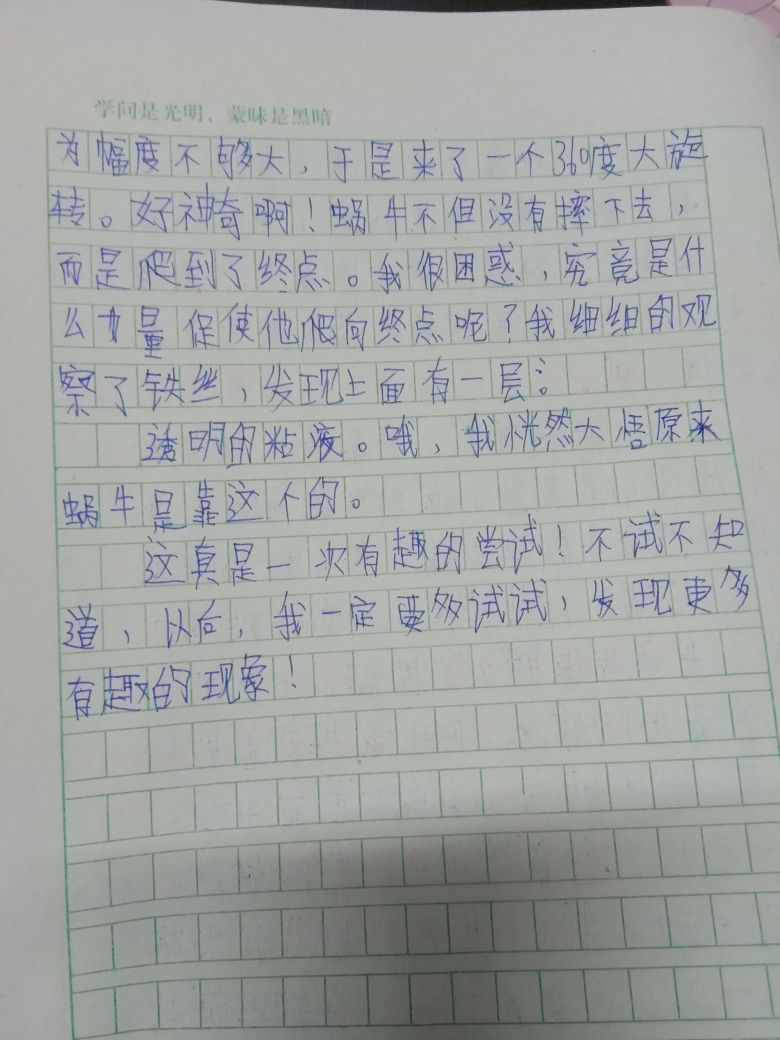 学问是光明，蒙昧是黑暗
为幅度不够大，于是来了一个360度大旋
转。好神奇啊！蜗牛不但没有摔下去，
而是爬到了终点。我很困惑，究竟是什
么力量促使他爬向终点呢？我细细的观
察了铁丝，发现上面有一层：
透明的粘液。哦，我恍然大悟原来
蜗牛是靠这个的。
这真是一次有趣的尝试！不试不知
道，以后，我一定要多试试，发现更多
有趣的现象！